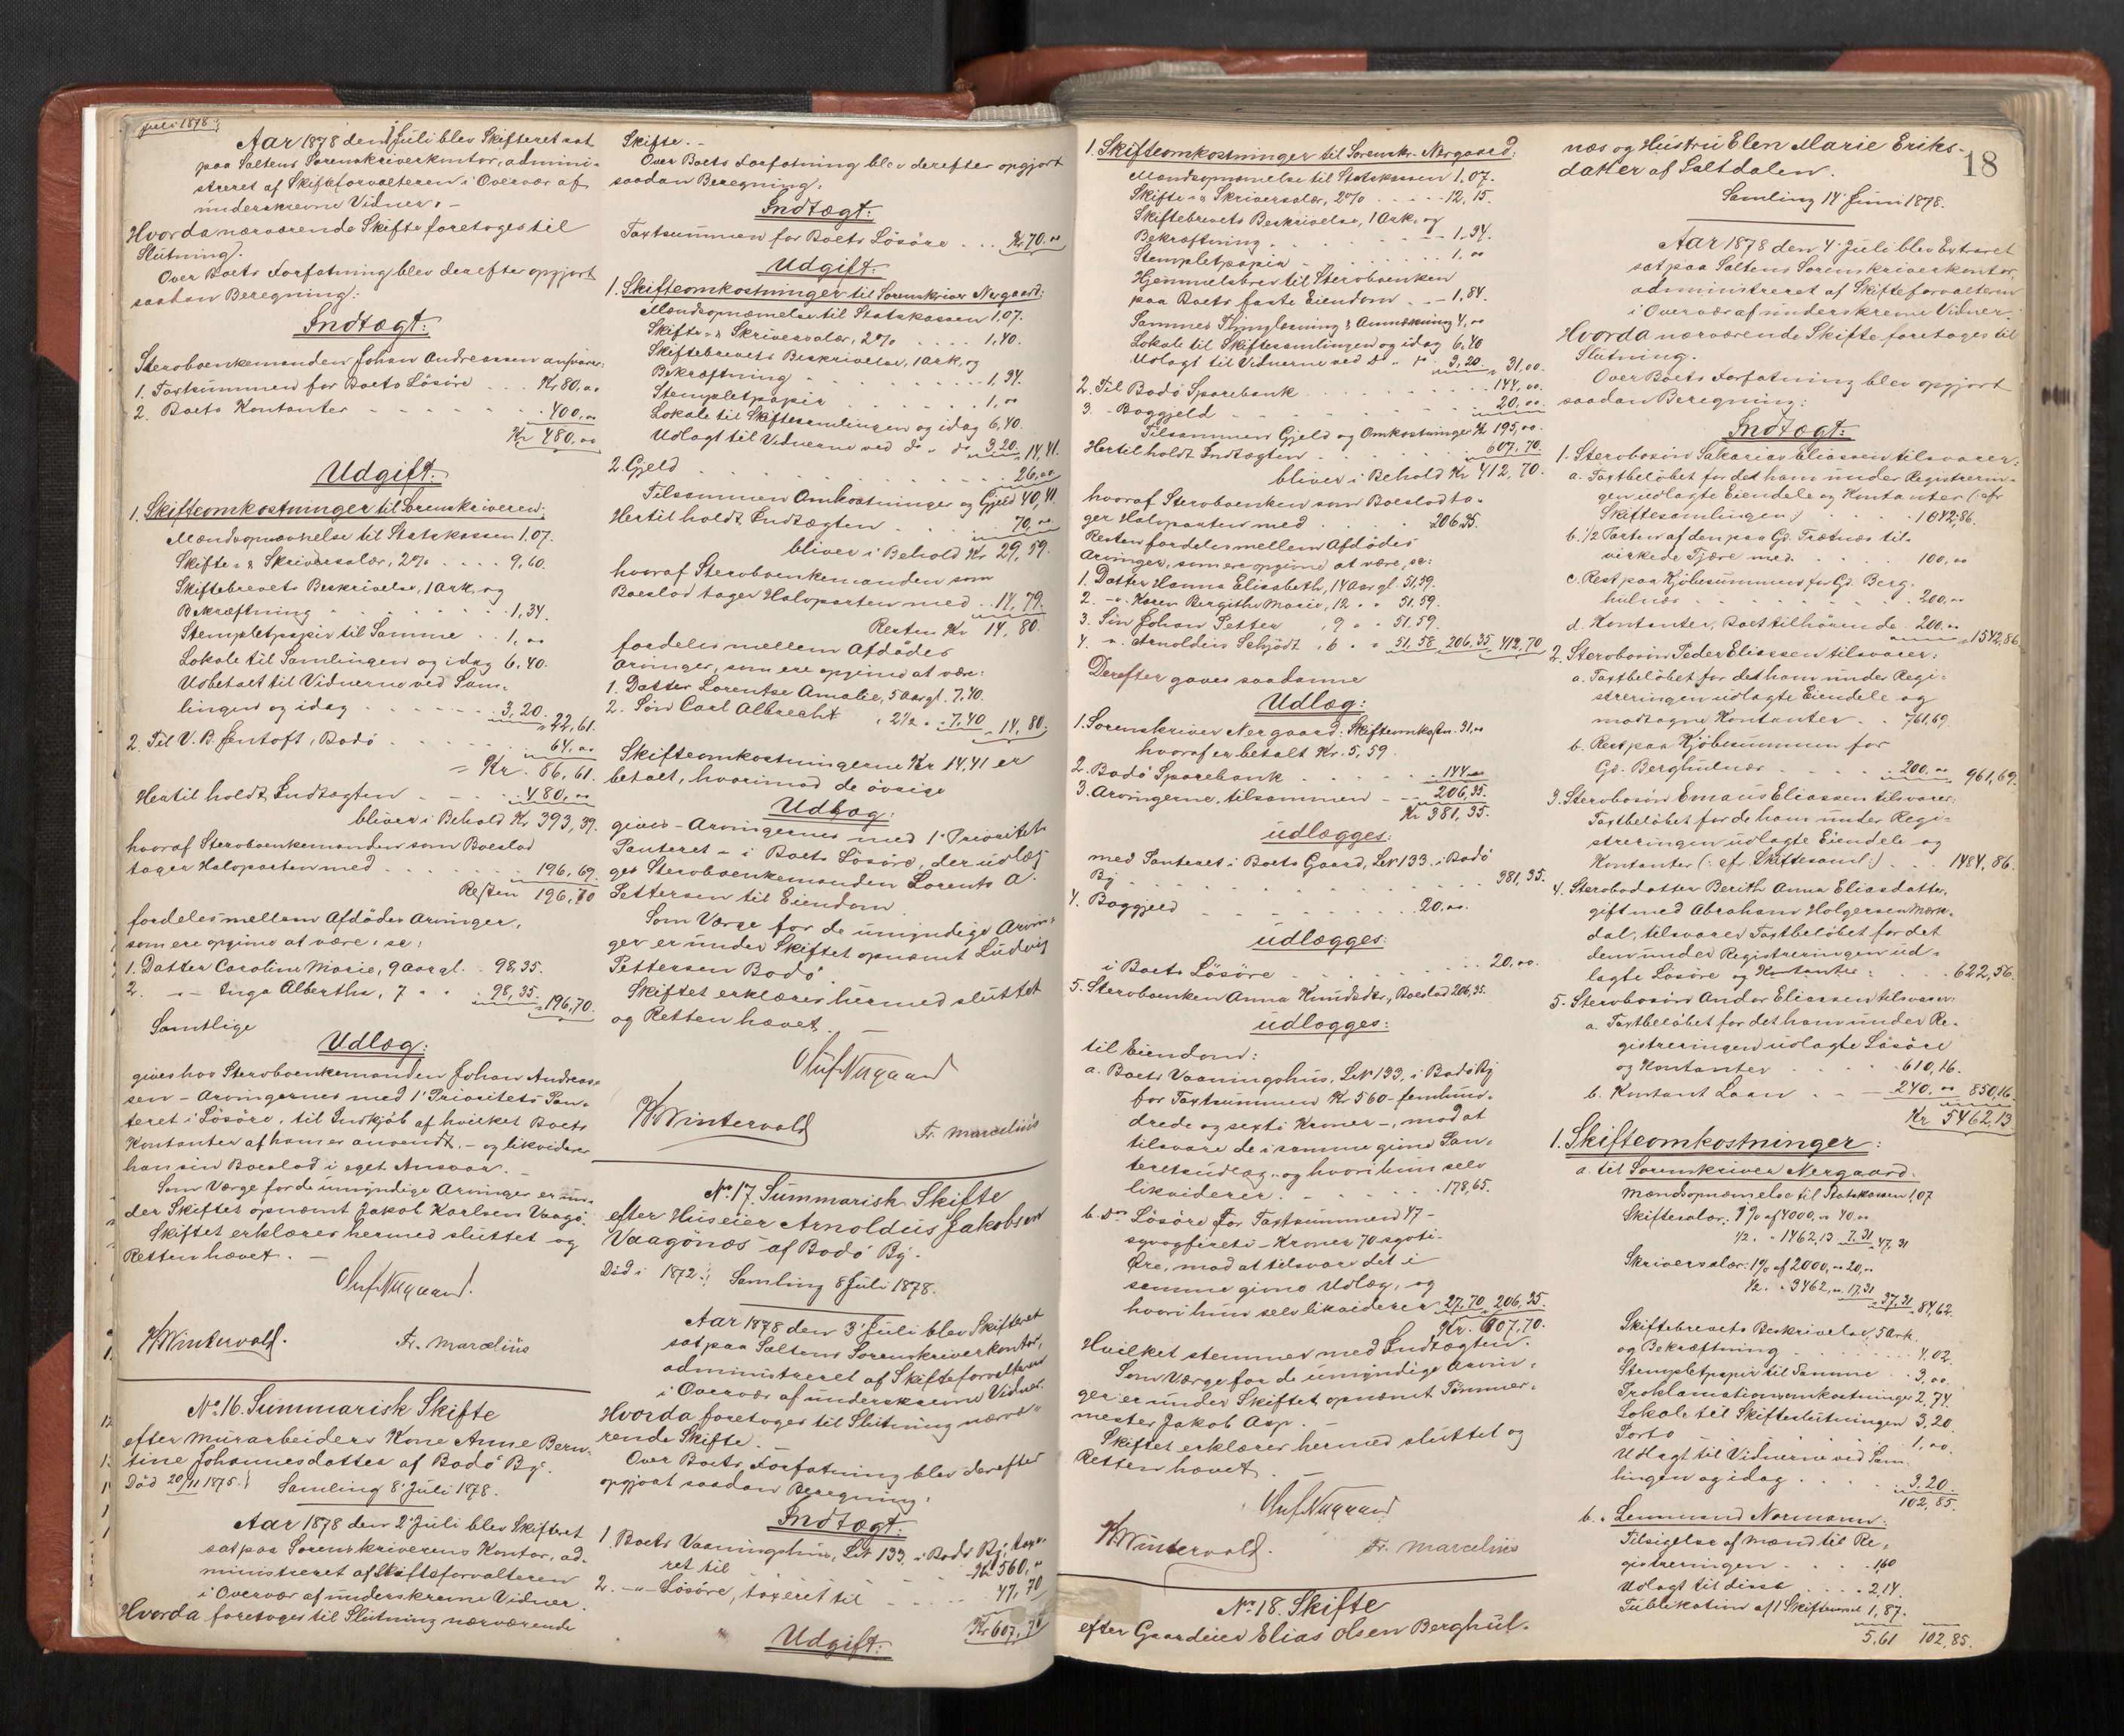 Juli 1878.
Aar 1878 den 1' Juli blev Skifteret sat
paa Saltens Sorenskriverkontor, admini-
streret af Skifteforvalteren i Overvær af
underskrevne Vidner. -
Hvorda nærværende Skifte foretoges til
Slutning.
Over Boets Forfatning blev derefter opgjort
saadan Beregning:
Indtægt:
Stervboenkemanden Johan Andreassen ansvarer:
1. Taxtsummen for Boets Lösöre . . . Kr 80,00
2. Boets Kontanter - - - - - 400,00
Kr 480,00
Udgift:
1. Skifteomkostninger til Sorenskriveren:
Mændsopnævnelse til Statskassen 1,07.
Skifte- & Skriversalær, 2% . . . . 9,60.
Skiftebrevets Beskrivelse, 1 Ark, og
Bekræftning . . . . . . . 1,34.
Stempletpapir til Samme . . 1,00
Lokale til Samlingen og idag 6,40.
Udbetalt til Vidnerne ved Sam-
lingen og idag . . . . . . 3,20. 22,61.
2. Til V. B. Jentoft, Bodö . . . . . 64,00
= Kr. 86,61.
Hertil holdt Indtægten - - - 480,00
bliver i Behold Kr 393,39.
hvoraf Stervboenkemanden som Boeslod
tager Halvparten med . . . . . . 196,69.
Resten 196,70
fordeles mellem Afdödes Arvinger,
som ere opgivne at være: se:
1. Datter Caroline Marie, 9 Aar gl. . 98,35.
2. -"- Inga Alberthe, 7 " " 98,35. 196,70.
Samtlige
Udlæg:
gives hos Stervboenkemanden Johan Andreas-
sen - Arvingernes med 1' Prioritets Pan-
teret i Lösöre, til Indkjöb af hvilket Boets
Kontanter af ham er anvendt, - og likviderer
han sin Boeslod i eget Ansvar. -
Som Værge for de umyndige Arvinger er un-
der Skiftet opnæmt Jakob Karlsen Vaagö.
Skiftet erklæres hermed sluttet og
Retten hævet. -
Oluf Nergaard.
H Wintervold.
Fr. Marcelius
No 16. Summarisk Skifte
efter Murarbeiders Kone Anne Bern-
tine Johannesdatter af Bodö By.
Död 20/11 1875. Samling 8' Juli 1878.
Aar 1878 den 2' Juli blev Skifteret
sat paa Sorenskriverens Kontor, ad-
ministreret af Skifteforvalteren
i Overvær af underskrevne Vidner.
Hvorda foretoges til Slutning nærværende
Skifte. -
Over Boets Forfatning blev derefter opgjort
saadan Beregning:
Indtægt:
Taxtsummen for Boets Lösöre . . . Kr 70.00
Udgift:
1. Skifteomkostninger til Sorenskriver Nergaard:
Mændsopnæmelse til Statskassen 1,07.
Skifte- & Skriversalær, 2% . . . . 1,40.
Skiftebrevets Beskrivelse, 1 Ark, og
Bekræftning . . . . . . . 1,34.
Stempletpapir . . . . . 1,00
Lokale til Skiftesamlingen og idag 6,40.
Udlagt til Vidnerne ved do " do 3,20. 14,41.
2. Gjeld . . . . . . . 26,00
Tilsammen Omkostninger og Gjeld 40,41.
Hertil holdt Indtægten . . . . 70,00
bliver i Behold Kr 29,59.
hvoraf Stervboenkemanden som
Boeslod tager Halvparten med . . 14,79.
Resten Kr 14,80.
fordeles mellem Afdödes
Arvinger, som ere opgivne at være:
1. Datter Lorentse Amalie, 5 Aar gl. 7,40.
2. Sön Carl Albrecht , 2½ " " 7,40 14,80.
Skifteomkostningerne Kr 14,41 er
betalt, hvorimod de övrige
Udlæg:
gives - Arvingernes med 1' Prioritets
Panteret - i Boets Lösöre, der udlæg-
ges Stervboenkemanden Lorents A.
Pettersen til Eiendom.
Som Værge for de umyndige Arvin-
ger er under Skiftet opnæmt Ludvig
Pettersen Bodö.
Skiftet erklæres hermed sluttet
og Retten hævet. -
Oluf Nergaard
H Wintervold
Fr. Marcelius
No 17. Summarisk Skifte
efter Huseier Arnoldus Jakobsen
Vaagönæs af Bodö By.
Död i 1872. Samling 8 Juli 1878.
Aar 1878 den 3' Juli blev Skifteret
sat paa Saltens Sorenskriverkontor,
administreret af Skifteforvalteren
i Overvær af underskrevne Vidner.
Hvorda foretoges til Slutning nærvæ-
rende Skifte.
Over Boets Forfatning blev derefter
opgjort saadan Beregning:
Indtægt:
1. Boets Vaaningshus, Let 133, i Bodö By, taxe-
ret til Kr 560,00
2. -"- Lösöre, taxeret til - - - - 47,70
Kr 607,70
Udgift:
1. Skifteomkostninger til Sorenskr. Nergaard:
Mændsopnæmelse til Statskassen 1,07.
Skifte- & Skriversalær, 2% . . . . . 12,15.
Skiftebrevets Beskrivelse, 1 Ark, og
Bekræftning . . . . . . . 1,34.
Stempletpapir . . . . . . . 1,00
Hjemmelsbrev til Stervboenken
paa Boets faste Eiendom . . - 1,84.
Sammes Thinglæsning & Anmærkning 4,00
Lokale til Skiftesamlingen og idag 6,40
Udlagt til Vidnerne ved do " " 3,20. 31,00.
2. Til Bodö Sparebank . . . . . . 144,00.
3. - Boggjeld . . . . 20,00.
Tilsammen Gjeld og Omkostninger Kr 195,00.
Hertil holdt Indtægten . . . . 607,70.
bliver i Behold Kr 412,70.
hvoraf Stervboenken som Boeslod ta-
ger Halvparten med . . . . . 206,35.
Resten fordeles mellem Afdödes
Arvinger, som ere opgivne at være, se:
1. Datter Hanna Elisabeth, 14 Aar gl. 51,59.
2. -"- Karen Bergithe Marie, 12 " " 51,59.
3. Sön Johan Petter , 9 " " 51,59.
4. " Arnoldin Schjödt , 6 " " 51,58 206,35 412,70
Derefter gaves saadanne
Udlæg:
1. Sorenskriver Nergaard: Skifteomkostn. 31,00
hvoraf er betalt Kr. 5,59.
2. Bodö Sparebank . . . . . . 144,00
3. Arvingerne, tilsammen - - 206,35.
Kr 381,35.
udlægges:
med Panteret i Boets Gaard, Let 133. i Bodö
By . . . . . . 381,35.
4. Boggjeld . . . . . 20,00.
udlægges:
i Boets Lösöre . . . . . 20,00.
5. Stervboenken Anna Knudsdtr, Boeslod 206,35.
udlægges:
til Eiendom:
a. Boets Vaaningshus, Let 133, i Bodö By
for Taxtsummen Kr 560 - femhun-
drede og sexti Kroner -, mod at
tilsvare de i samme givne Pan-
teretsudlæg, og hvori hun selv
likviderer . . . . . . 178,65.
b. Do Lösöre for Taxtsummen 47 -
syvogfireti - Kroner 70 - sytti -
Öre, mod at tilsvare det i
samme givne Udlæg, og
hvori hun selv likviderer 27,70 206,35.
Kr. 607,70.
Hvilket stemmer med Indtægten.
Som Værge for de umyndige Arvin-
ger er under Skiftet opnæmt Tömmer-
mester Jakob Asp. -
Skiftet erklæres hermed sluttet og
Retten hævet. -
Oluf Nergaard
H Wintervold.
Fr. Marcelius
No 18. Skifte
efter Gaardeier Elias Olsen Berghul-
18
næs og Hustru Elen Marie Eriks-
datter af Saltdalen.
Samling 14' Juni 1878.
Aar 1878 den 4' Juli blev Extraret
sat paa Saltens Sorenskriverkontor,
administreret af Skifteforvalteren
i Overvær af underskrevne Vidner.
Hvorda nærværende Skifte foretoges til
Slutning.
Over Boets Forfatning blev opgjort
saadan Beregning:
Indtægt:
1. Stervbosön Sakarias Eliassen tilsvarer:
a. Taxtbelöbet for det ham under Registrerin-
gen udlagte Eiendele og Kontanter (: cfr
Skiftesamlingen :) . . . 1042,86.
b. 1/2 Parten af den paa Gd. Trætnæs til-
virkede Tjære med . . . 100,00
c. Rest paa Kjöbesummen for Gd. Berg-
hulnæs . . . . . 200,00
d. Kontanter, Boet tilhörende . 200,00 1542,86
2. Stervbosön Peder Eliassen tilsvarer:
a. Taxtbelöbet for det ham under Regi-
streringen udlagte Eiendele og
modtagne Kontanter . . 761,69.
b. Rest paa Kjöbesummen for
Gd. Berghulnæs . . . 200,00 961,69.
3. Stervbosön Emaus Eliassen tilsvarer:
Taxtbelöbet for de ham under Regi-
streringen udlagte Eiendele og
Kontanter (: cfr. Skiftesaml :) . . . 1484,86.
4. Stervbodatter Berith Anna Eliasdatter,
gift med Abraham Holgersen Mørk-
dal, tilsvarer Taxtbelöbet for det
dem under Registreringen ud-
lagte Lösöre og Kontanter: . . . 622,56.
5. Stervbosön Andor Eliassen tilsvarer:
a. Taxtbelöbet for det ham under Re-
gistreringen udlagte Lösöre
og Kontanter . . . . 610,16.
b. Kontant Laan . . - 240,00 850,16.
Kr 5462,13
1. Skifteomkostninger:
a. til Sorenskriver Nergaard.
Mændsopnæmelse til Statskassen 1,07
Skiftesalær: 1% af 4000, " 40,00
1/2 " " 1462,13 7,31 47,31
Skriversalær: 1% af 2000,00 20,00
1/2 " " 3462,00 17,31 37,31 84,62
Skiftebrevets Beskrivelse, 5 Ark
og Bekræftning . . . . . . 4,02.
Stempletpapir til Samme . . 3,00.
Proklamationsomkostninger 2,74.
Lokale til Skifteslutningen 3,20
Porto . . . 1,00.
Udlagt til Vidnerne ved Sam-
lingen og idag . . . . 3,20.
102,85.
b. Lensmand Normann:
Tilsigelse af Mænd til Re-
gistreringen . . . 1,60
Udlagt til disse . . . . 2,14.
Publikation af 1 Skiftevarsel 1,87.
5,61 102,85.